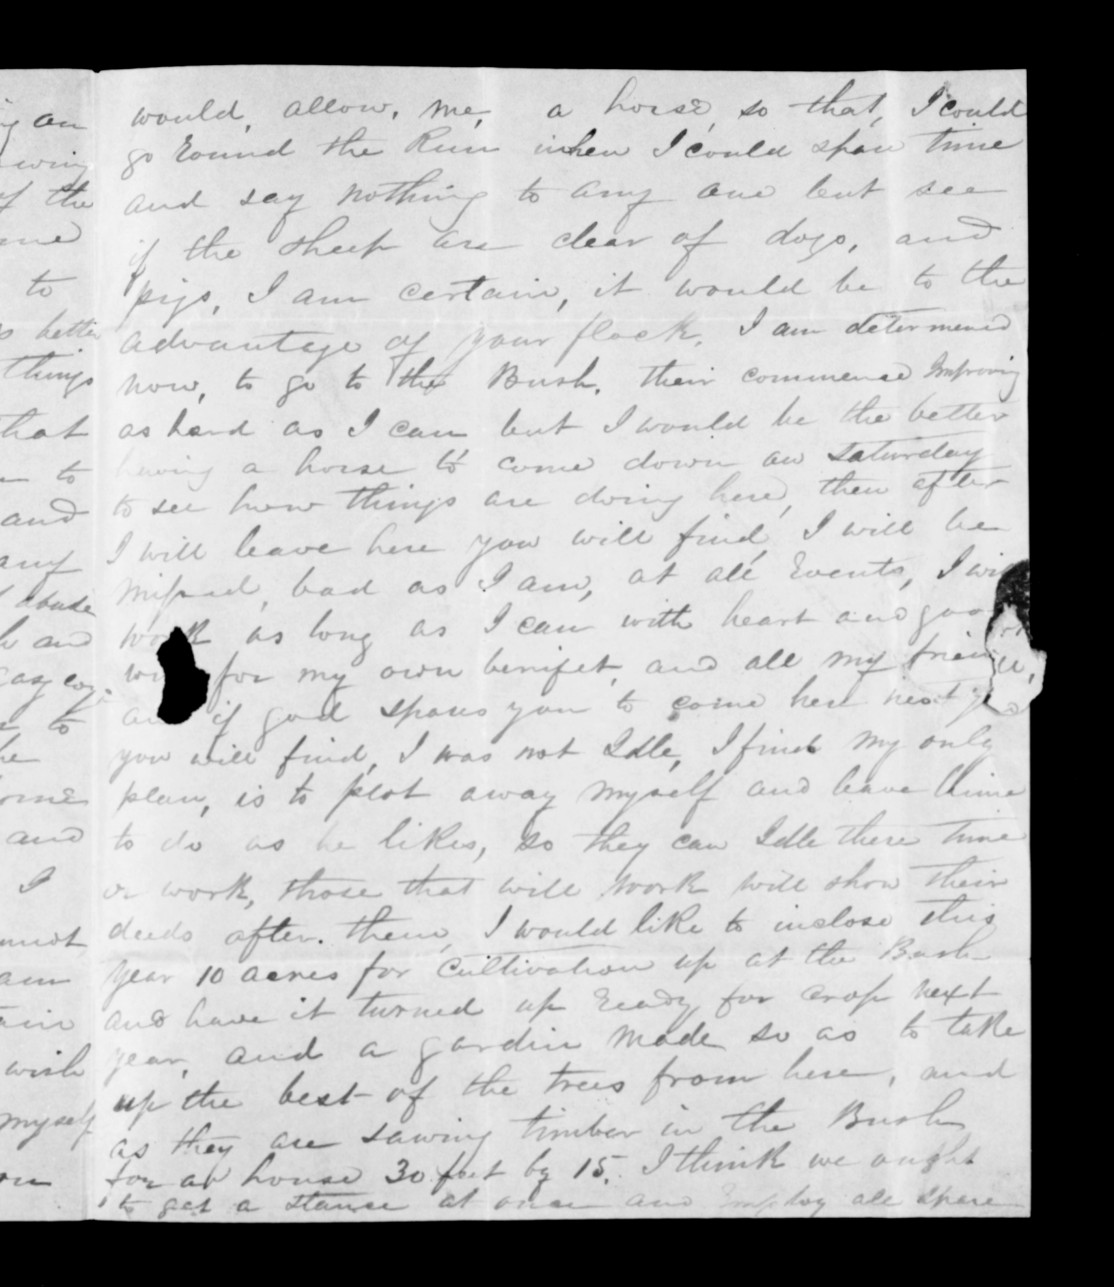 would, allow, me, a horse, so that, I could
go Round the Run when I could spare time
and say nothing to any one but see
if the sheep are clear of dogs, and
pigs, I am certain, it would be to the
advantage of your flock. I am determened
now, to go to the Bush. their commence Improving
as hard as I can but I would be the better
having a horse to come down on Saturday
to see how things are doing here, then after
I will leave here you will find, I will be
missed, bad as I am, at all Events, I will
work as long as I can with heart and good
for my own benifet, and all my friends,
and if god spares you to come here next
you will find, I was not Idle, I find my only
plan, is to plot away myself and leave him
to do as he likes, so they can Idle there time
or work, those that will work will show their
deeds after. them, I would like to inclose this
year 10 acres for Cultivation up at the Bush
and have it turned up Ready for crop next
year, and a gardin made so as to take
up the best of the trees from here, and
as they are sawing timber in the Bush
for an house 30 feet by 15. I think we ought
to get a stance at once and Employ all spare
an
of the
me
to
better
things
that
to
and
any
abuse
and
easy
to
and
I
am
wish
myself